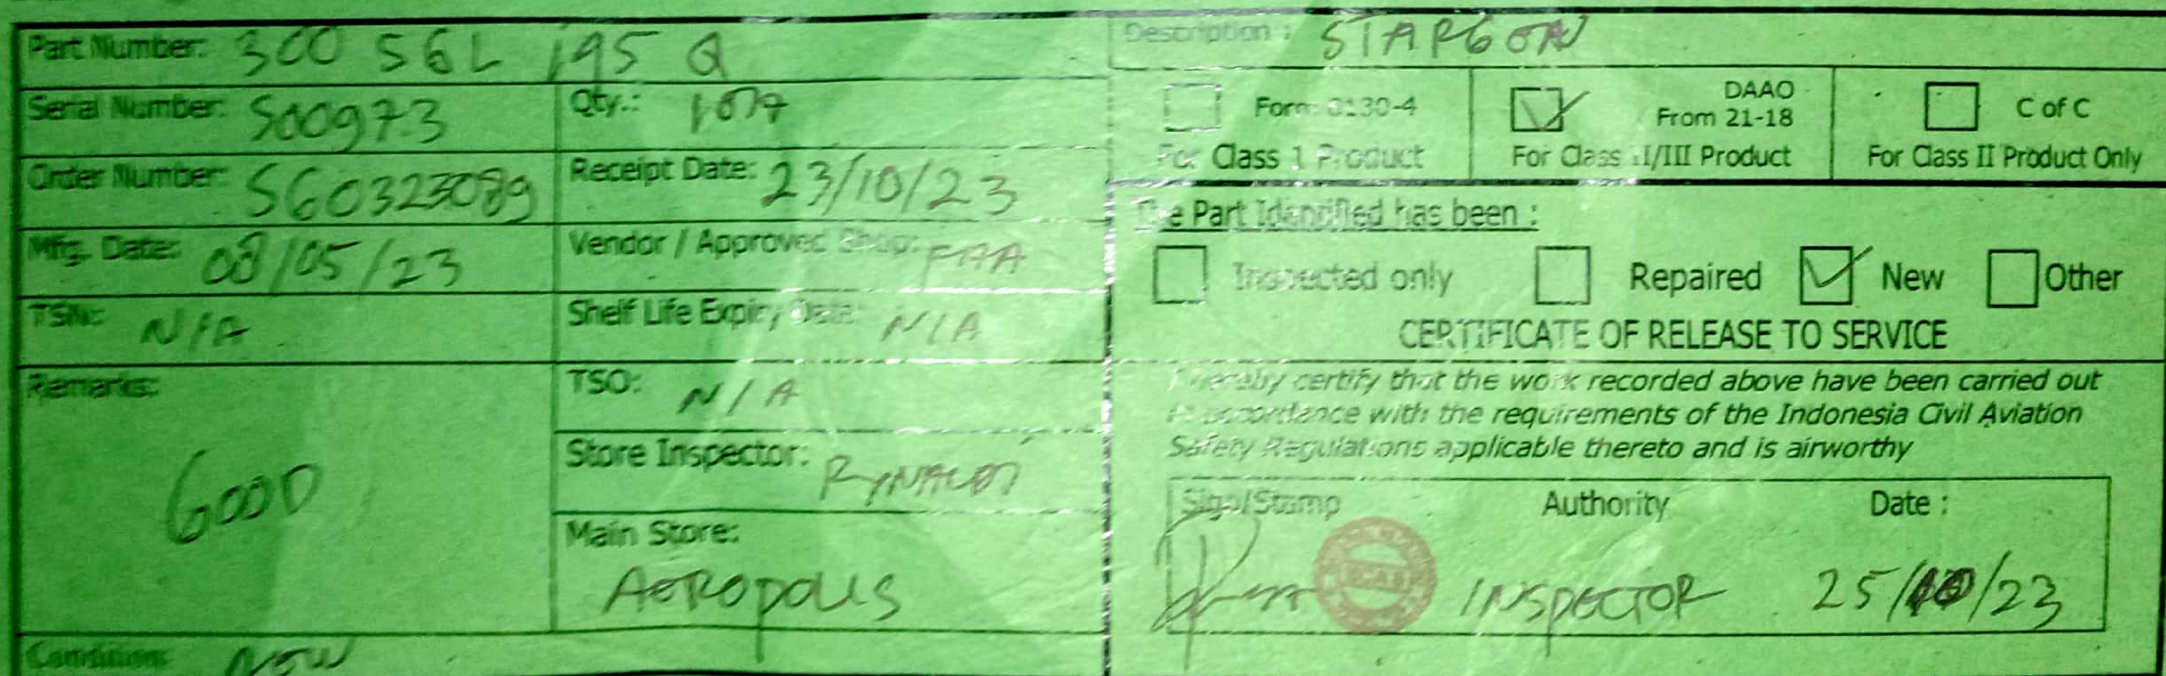 Part Number: 300 SGL 195 Q
Serial Number: S00973
Qty.:
Order Number: SG0323089
Receipt Date: 23/10/23
Mfg. Date: 08/05/23
Vendor / Approved Shop: FAA
TSN: N/A
Shelf Life Expiry Date: N/A
Remarks: GOOD
TSO: N/A
Store Inspector:
Main Store: AEROPOLIS
Condition: NEW
Description : STARGEN
Form 8130-4
For Class 1 Product
DAAO
From 21-18
For Class II/III Product
C of C
For Class II Product Only
The Part Identified has been :
Inspected only
Repaired
New
Other
CERTIFICATE OF RELEASE TO SERVICE
I hereby certify that the work recorded above have been carried out
in accordance with the requirements of the Indonesia Civil Aviation
Safety Regulations applicable thereto and is airworthy
Sign/Stamp Authority Date :
INSPECTOR 25/10/23